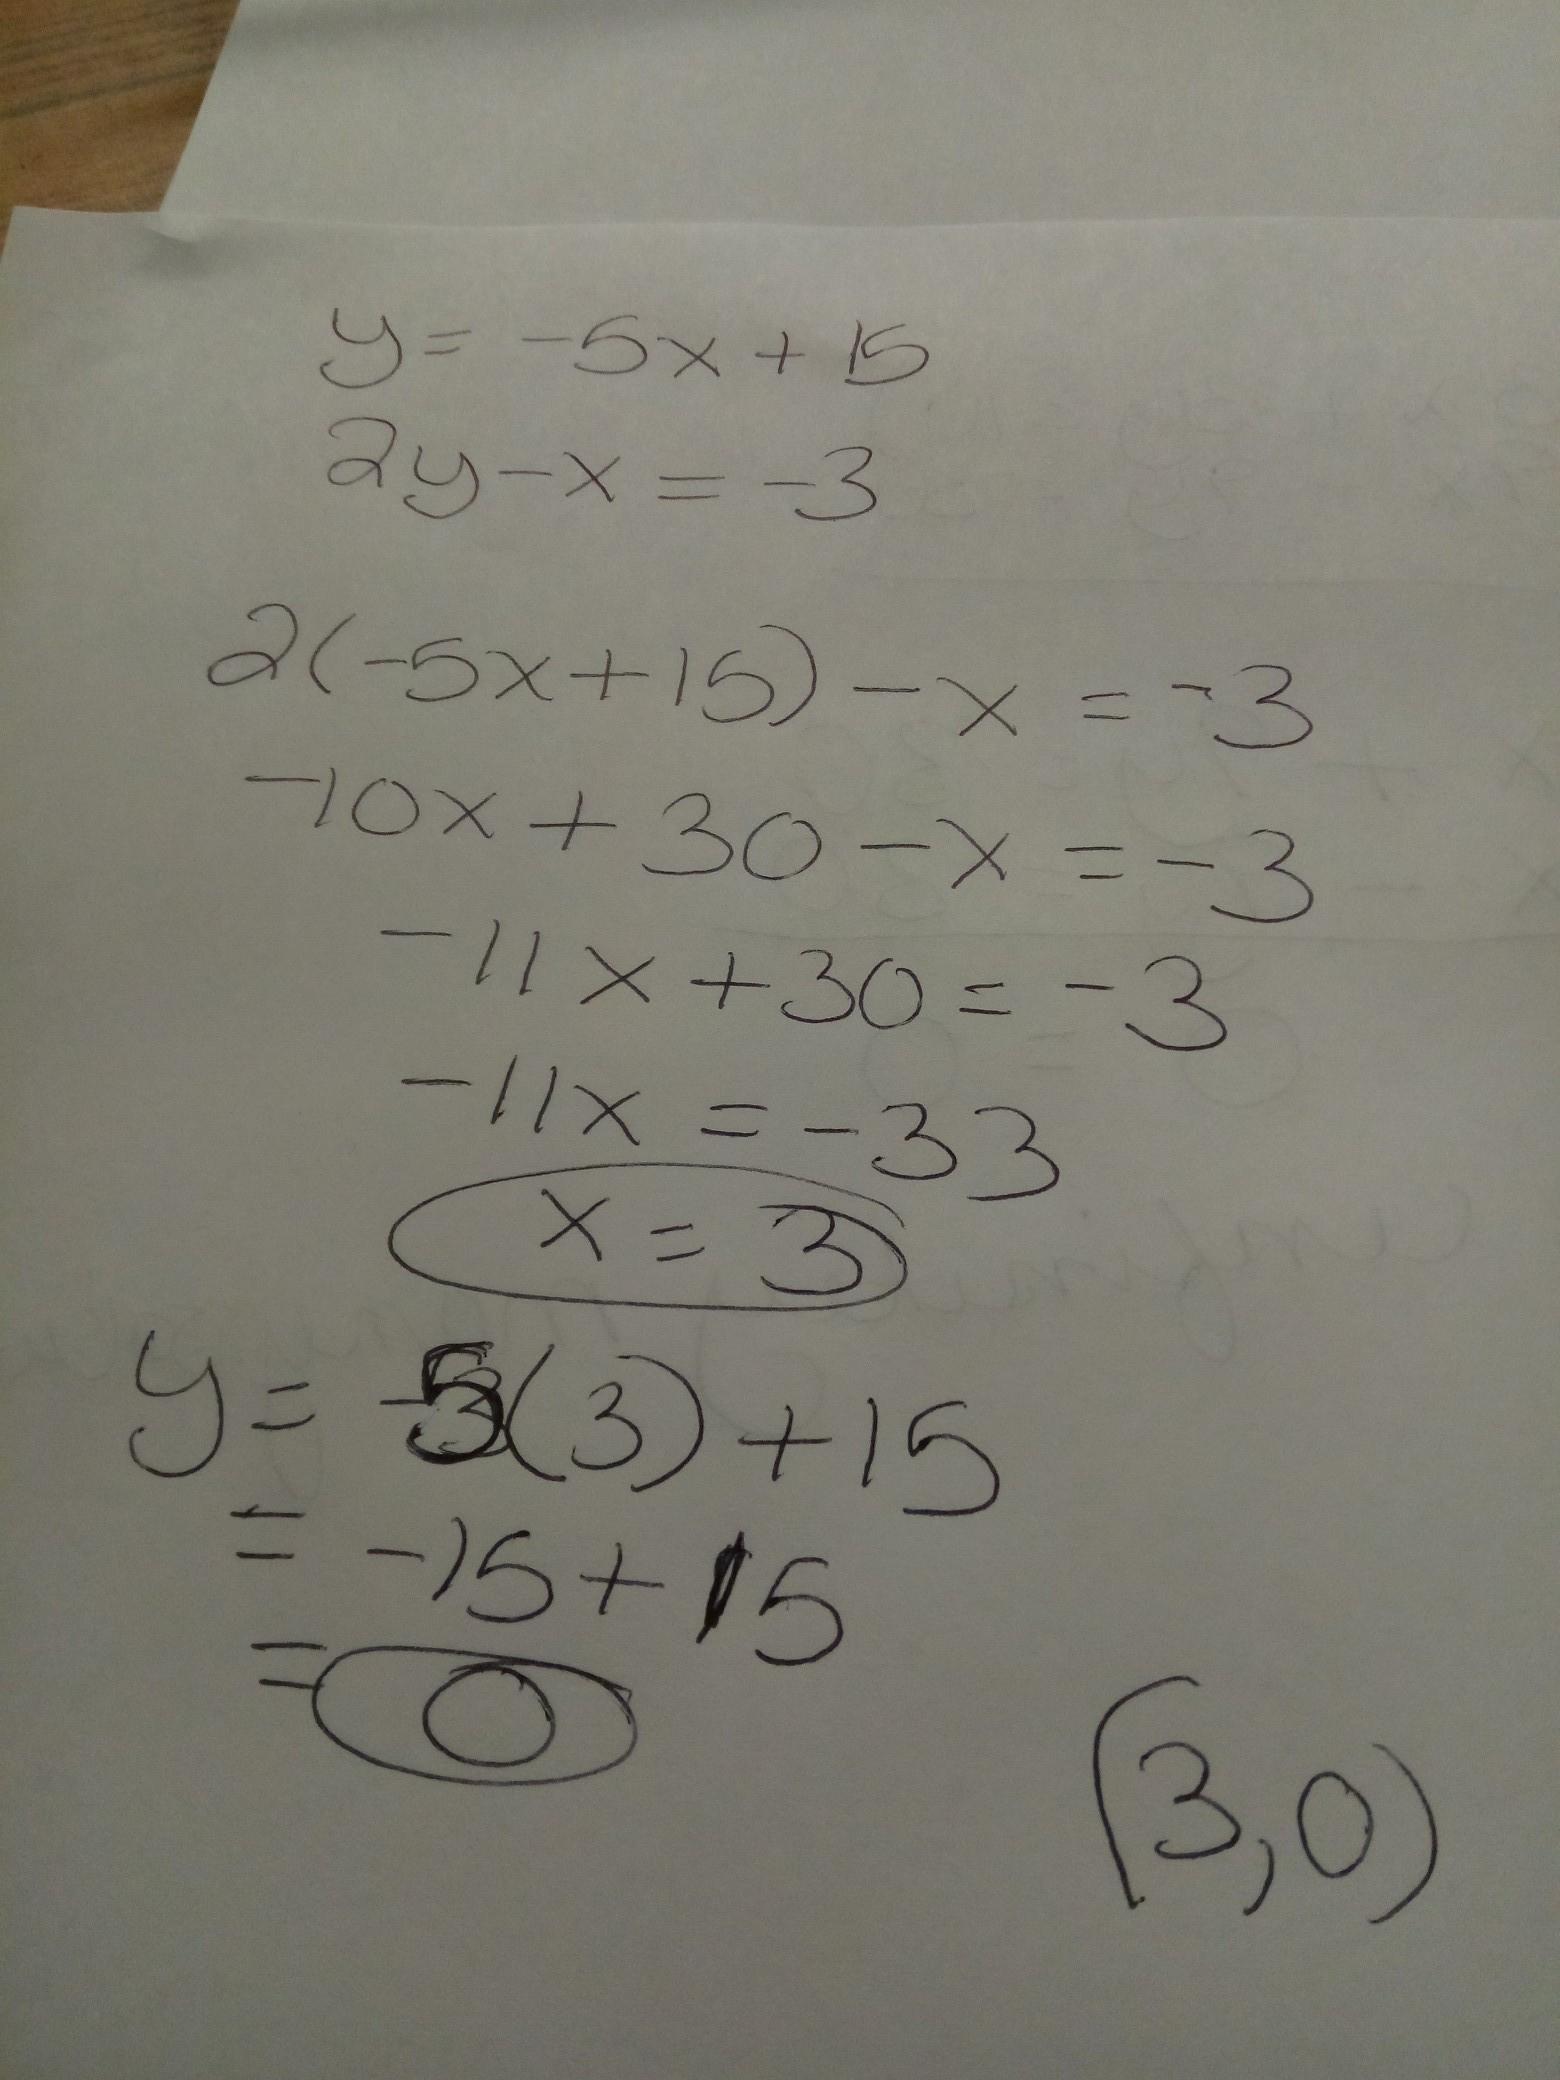 y = -5x + 15
2y - x = -3
2(-5x + 15) - x = -3
-10x + 30 - x = -3
-11x + 30 = -3
-11x = -33
x = 3
y = -5(3) + 15
= -15 + 15
= 0
(3, 0)